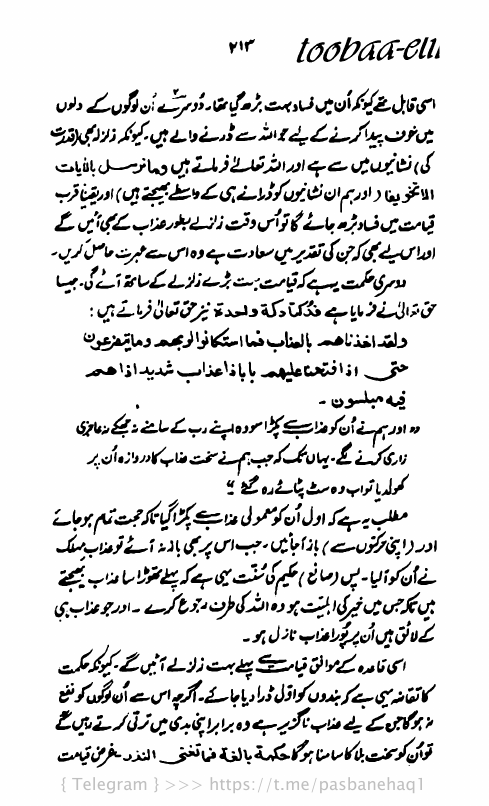 ۲۱۳
toobaa-elib
اسی قابل تھے کیونکہ اُن میں فساد بہت بڑھ گیا تھا۔ دُوسرے اُن لوگوں کے دلوں
میں خوف پیدا کرنے کے لیے جو اللہ سے ڈرنے والے ہیں۔ کیونکہ زلزلہ بھی (قدرت
کی) نشانیوں میں سے ہے اور اللہ تعالیٰ فرماتے ہیں ومانرسل بالأيات
الا تخويفا (اور ہم ان نشانیوں کو ڈرانے ہی کے واسطے بھیجتے ہیں) اور یقیناً قرب
قیامت میں فساد بڑھ جائے گا تو اُس وقت زلزلے بطور عذاب کے بھی آئیں گے
اور اس لیے بھی کہ جن کی تقدیر میں سعادت ہے وہ اس سے عبرت حاصل کریں۔
دوسری حکمت یہ ہے کہ قیامت بہت بڑے زلزلے کے ساتھ آئے گی۔ جیسا
حق تعالیٰ نے فرمایا ہے فدكتا دكة واحدة نیز حق تعالیٰ فرماتے ہیں :
ولقد اخذناهم بالعذاب فما استكانوا لربهم وما يتضرعون
حتى اذا فتحنا عليهم بابا ذا عذاب شديد اذا هم
فيه مبلسون ۔
"اور ہم نے اُن کو عذاب سے پکڑا سو وہ اپنے رب کے سامنے نہ جھکے نہ عاجزی
زاری کرنے لگے۔ یہاں تک کہ جب ہم نے سخت عذاب کا دروازہ اُن پر
کھول دیا تو اب وہ سٹ پٹائے رہ گئے"
مطلب یہ ہے کہ اول اُن کو معمولی عذاب سے پکڑا گیا تاکہ حجت تمام ہو جائے
اور (اپنی حرکتوں سے) باز آجائیں۔ جب اس پر بھی باز نہ آئے تو عذاب مہلک
نے اُن کو آلیا۔ پس (صانع) حکیم کی سُنّت یہی ہے کہ پہلے تھوڑا سا عذاب بھیجتے
ہیں تاکہ جس میں خیر کی اہلیت ہو وہ اللہ کی طرف رجوع کرے۔ اور جو عذاب ہی
کے لائق ہیں اُن پر پُورا عذاب نازل ہو۔
اسی قاعدہ کے موافق قیامت سے پہلے بہت زلزلے آئیں گے۔ کیونکہ حکمت
کا تقاضہ یہی ہے کہ بندوں کو اوّل ڈرا دیا جائے۔ اگرچہ اس سے اُن لوگوں کو نفع
نہ ہوگا جن کے لیے عذاب ناگزیر ہے وہ برابر اپنی بدی میں ترقی کرتے رہیں گے
تو اُن کو سخت بلا کا سامنا ہوگا حكمة بالغة فما تغنى النذر۔ غرض قیامت
{ Telegram } >>> https://t.me/pasbanehaq1